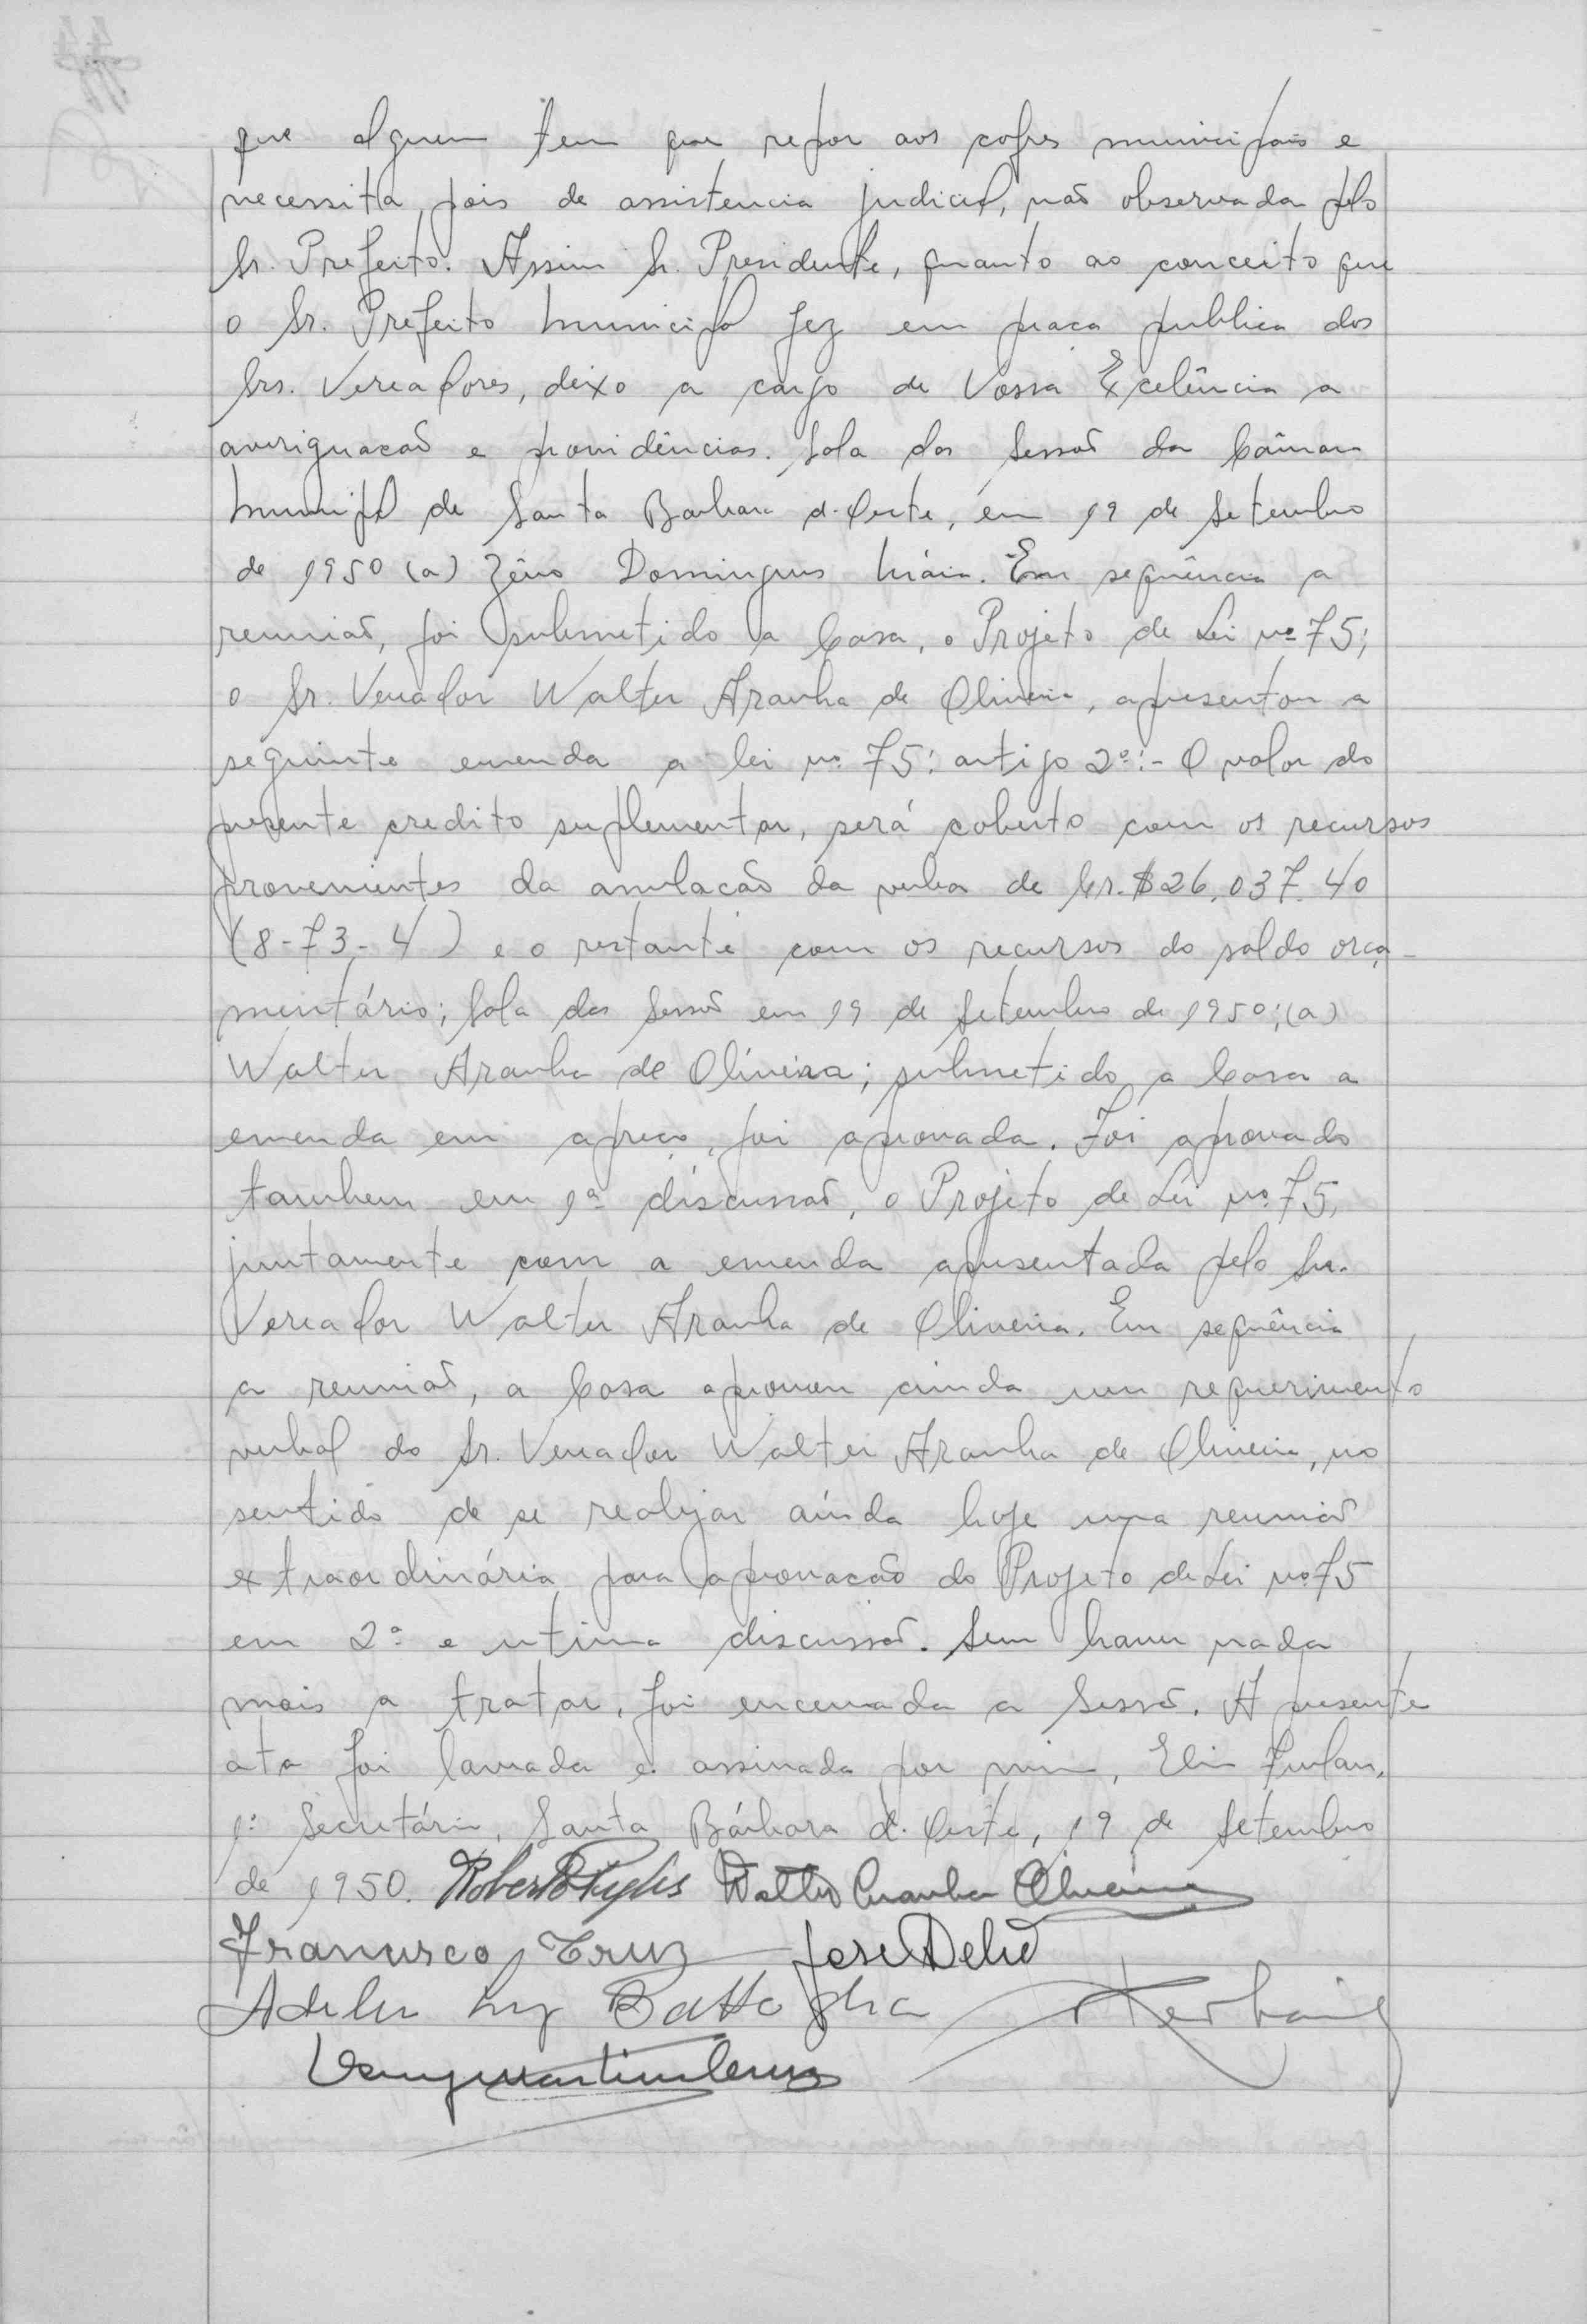 que alguem tem que repor aos cofres municipais e
necessita, pois de assistencia judicial, não observada pelo
Sr. Prefeito. Assim Sr. Presidente, quanto ao conceito que
o Sr. Prefeito Municipal fez em praca publica dos
Srs. Vereadores, deixo a cargo de Vossa Excelência a
averiguacaõ e providências. Sala das Sessoẽs da Câmara
Municipal de Santa Barbara d'Oeste, em 19 de Setembro
de 1950 (a) Zêno Domingues Máia. Em sequência a
reuniaõ, foi submetido a Casa, o Projeto de Lei nº 75;
o Sr. Vereador Walter Aranha de Oliveira, apresentou a
seguinte emenda a lei nº 75: artigo 2º:- O valor do
presente credito suplementar, será coberto com os recursos
provenientes da anulacaõ da verba de Cr.$26.037.40
(8-73-4) e o restante com os recursos do saldo orça-
mentário; Sala das Sessoẽs em 19 de Setembro de 1950; (a)
Walter Aranha de Oliveira; submetido a Casa a
emenda em apreço, foi aprovada. Foi aprovado
tambem em 1ª discussaõ, o Projeto de Lei nº 75,
juntamente com a emenda apresentada pelo Sr.
Vereador Walter Aranha de Oliveira. Em sequência
a reuniaõ, a Casa aprovou ainda um requerimento
verbal do Sr. Vereador Walter Aranha de Oliveira, no
sentido de se realizar ainda hoje uma reuniaõ
extraordinária para aprovacão do Projeto de Lei nº 75
em 2ª e utima discussaõ. Sem haver nada
mais a tratar, foi encerrada a Sessaõ. A presente
ata foi lavrada e assinada por mim, Elio Furlan,
1º Secretário, Santa Bárbara d'Oeste, 19 de Setembro
de 1950. Roberto Walter Aranha Oliveira
Francisco Cruz José Delió
Battaglia